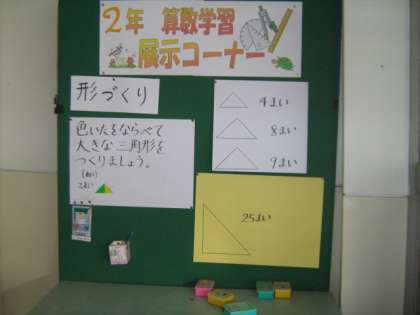 2年 算数学習
展示コーナー
形づくり
色いたをならべて
大きな三角形を
つくりましょう。
(れい)
4まい
8まい
9まい
25まい